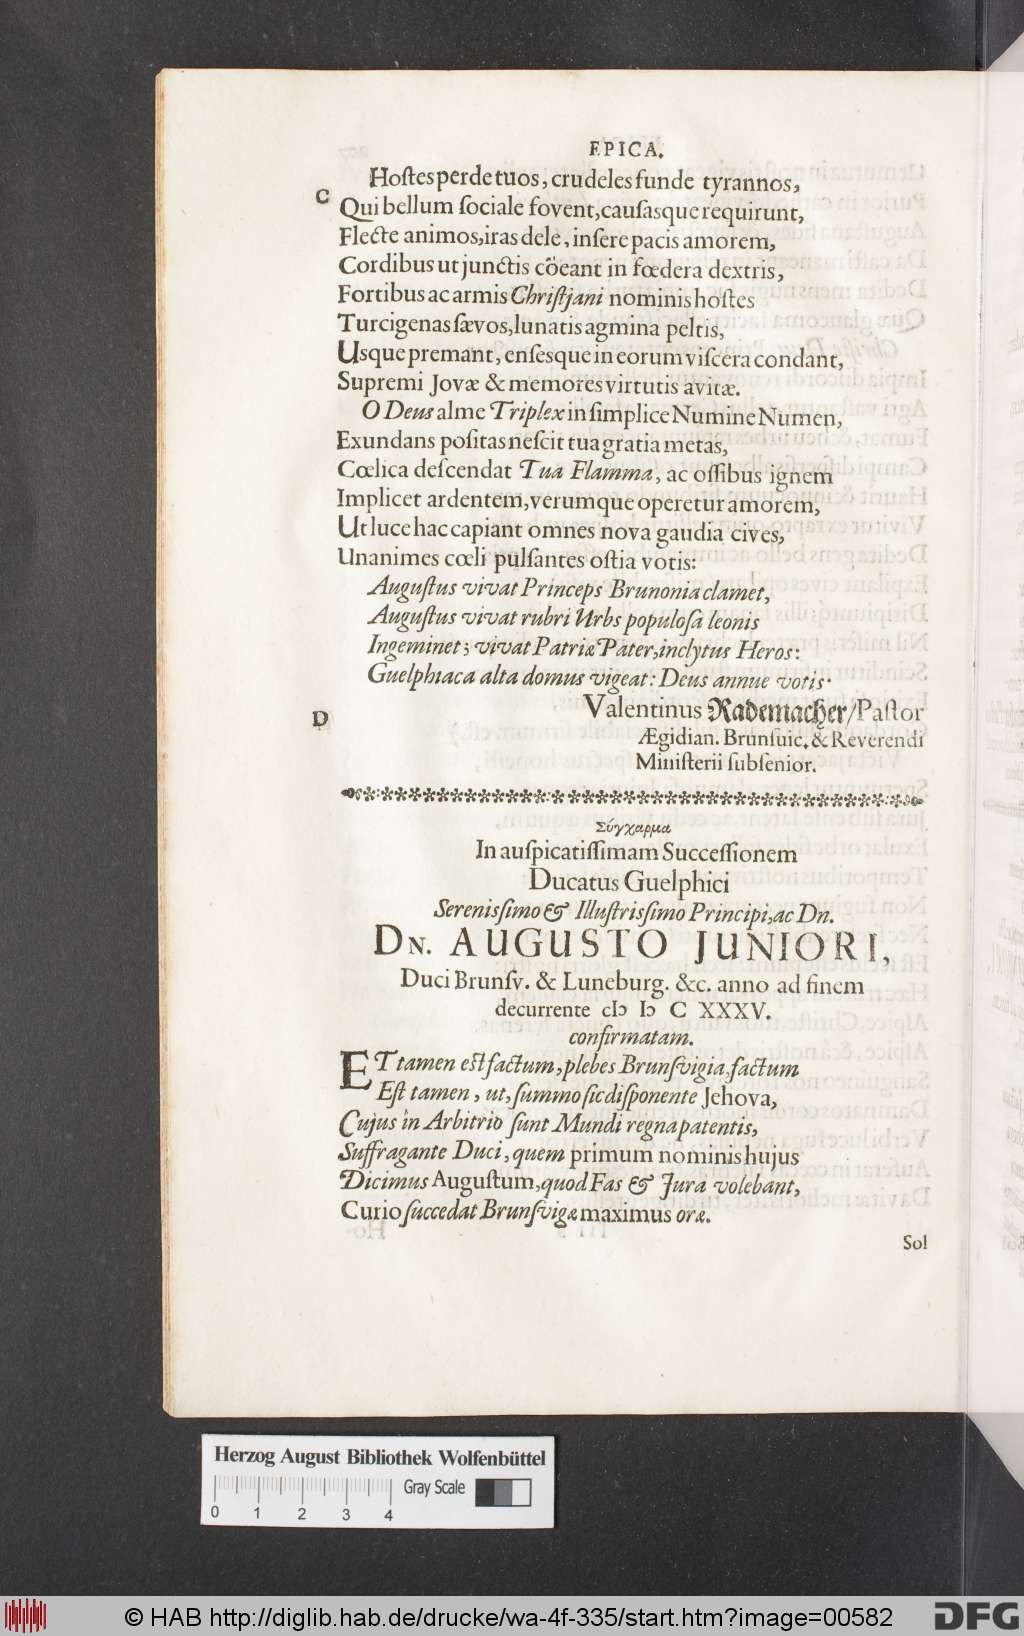 EPICA.
Hoſtes perde tuos, crudeles funde tyrannos,
C
Qui bellum ſociale fovent, cauſasque requirunt,
Flecte animos, iras dele, inſere pacis amorem,
Cordibus ut junctis cöeant in fœdera dextris,
Fortibus ac armis Chriſtjani nominis hoſtes
Turcigenas ſævos, lunatis agmina peltis,
Usque premant, enſesque in eorum viſcera condant,
Supremi Jovæ & memores virtutis avitæ.
O Deus alme Triplex in ſimplice Numine Numen,
Exundans poſitas neſcit tua gratia metas,
Cœlica deſcendat Tua Flamma, ac oſſibus ignem
Implicet ardentem, verumque operetur amorem,
Ut luce hac capiant omnes nova gaudia cives,
Unanimes cœli pulſantes oſtia votis:
Auguſtus vivat Princeps Brunonia clamet,
Auguſtus vivat rubri Urbs populoſa leonis
Ingeminet; vivat Patriæ Pater, inclytus Heros:
Guelphiaca alta domus vigeat: Deus annue votis.
D
Valentinus Rademacher/Paſtor
Ægidian. Brunſuic. & Reverendi
Miniſterii ſubſenior.
Σύγχαρμα
In auſpicatiſſimam Succeſſionem
Ducatus Guelphici
Sereniſſimo & Illuſtriſſimo Principi, ac Dn.
DN. AUGUSTO JUNIORI,
Duci Brunſv. & Luneburg. &c. anno ad finem
decurrente cIɔ Iɔ C XXXV.
confirmatam.
ET tamen eſt factum, plebes Brunſvigia, factum
Eſt tamen, ut, ſummo ſic diſponente Jehova,
Cujus in Arbitrio ſunt Mundi regna patentis,
Suffragante Duci, quem primum nominis hujus
Dicimus Auguſtum, quod Fas & Jura volebant,
Curio ſuccedat Brunſvigæ maximus oræ.
Sol
Herzog August Bibliothek Wolfenbüttel
Gray Scale
0 1 2 3 4
© HAB http://diglib.hab.de/drucke/wa-4f-335/start.htm?image=00582
DFG